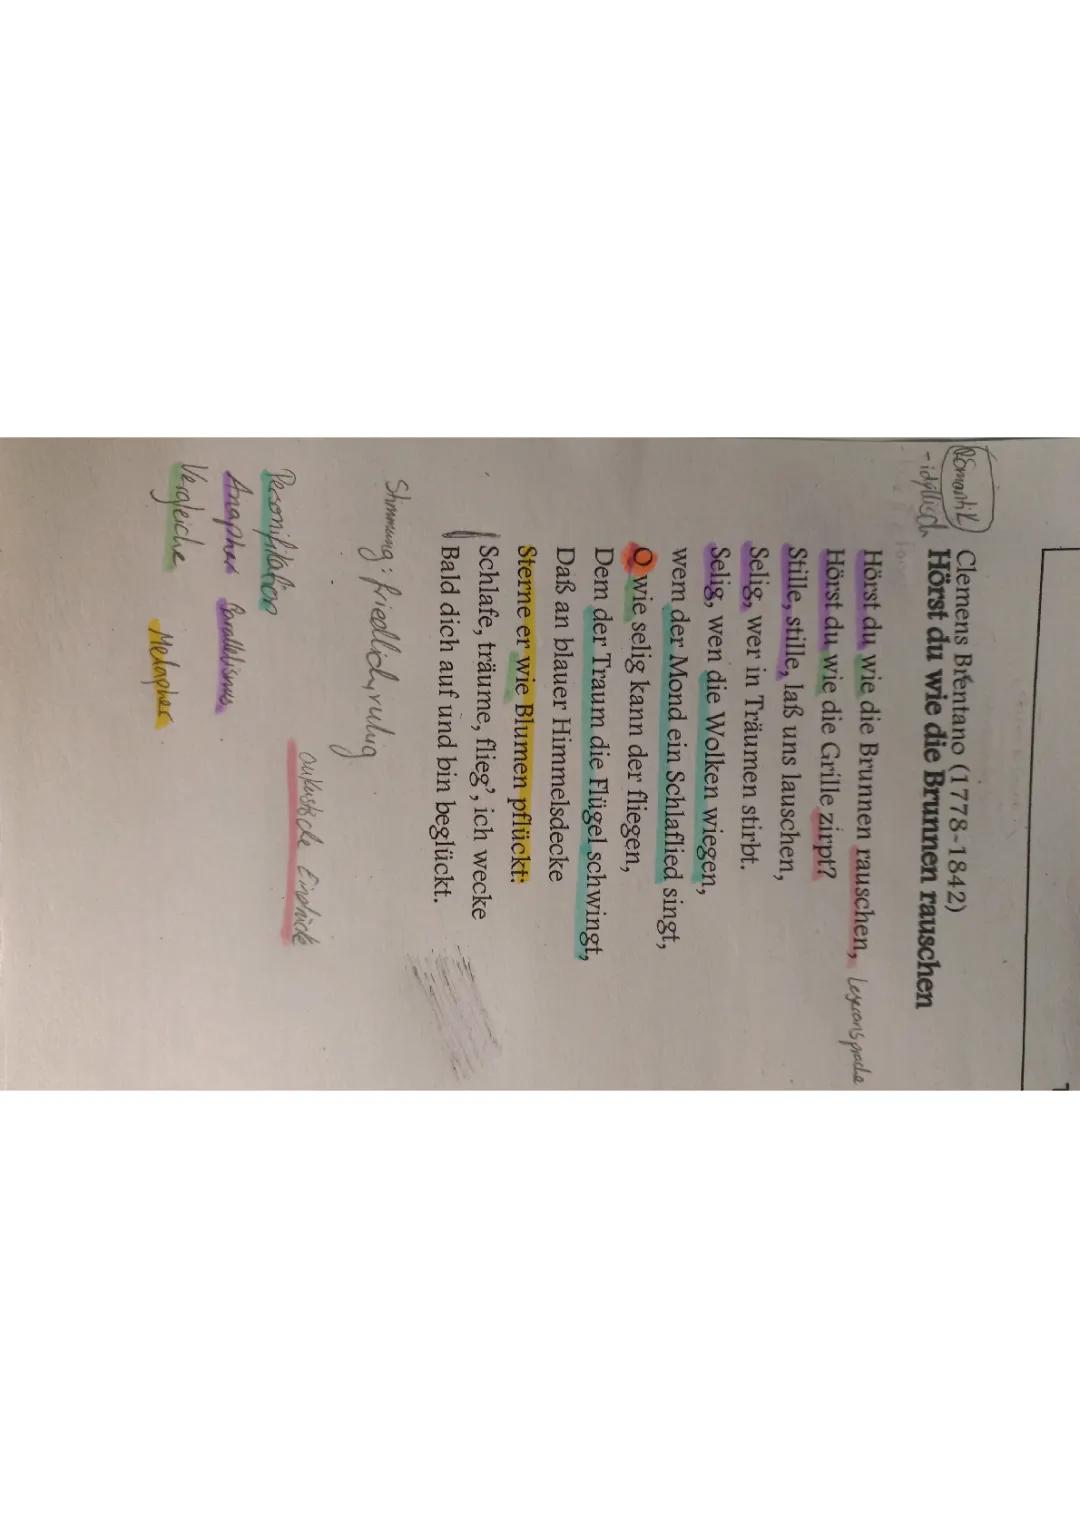 Romantik
- idyllisch
Clemens Brentano (1778-1842)
Hörst du wie die Brunnen rauschen
Hörst du wie die Brunnen rauschen,
Hörst du wie die Grille zirpt?
Stille, stille, laß uns lauschen,
Selig, wer in Träumen stirbt.
Selig, wen die Wolken wiegen,
wem der Mond ein Schlaflied singt,
O wie selig kann der fliegen,
Dem der Traum die Flügel schwingt,
Daß an blauer Himmelsdecke
Sterne er wie Blumen pflückt:
Schlafe, träume, flieg', ich wecke
Bald dich auf und bin beglückt.
Stimmung: friedlich, ruhig
akustische Eindrücke
Personifikation
Anapher Parallelismus
Vergleiche
Metapher